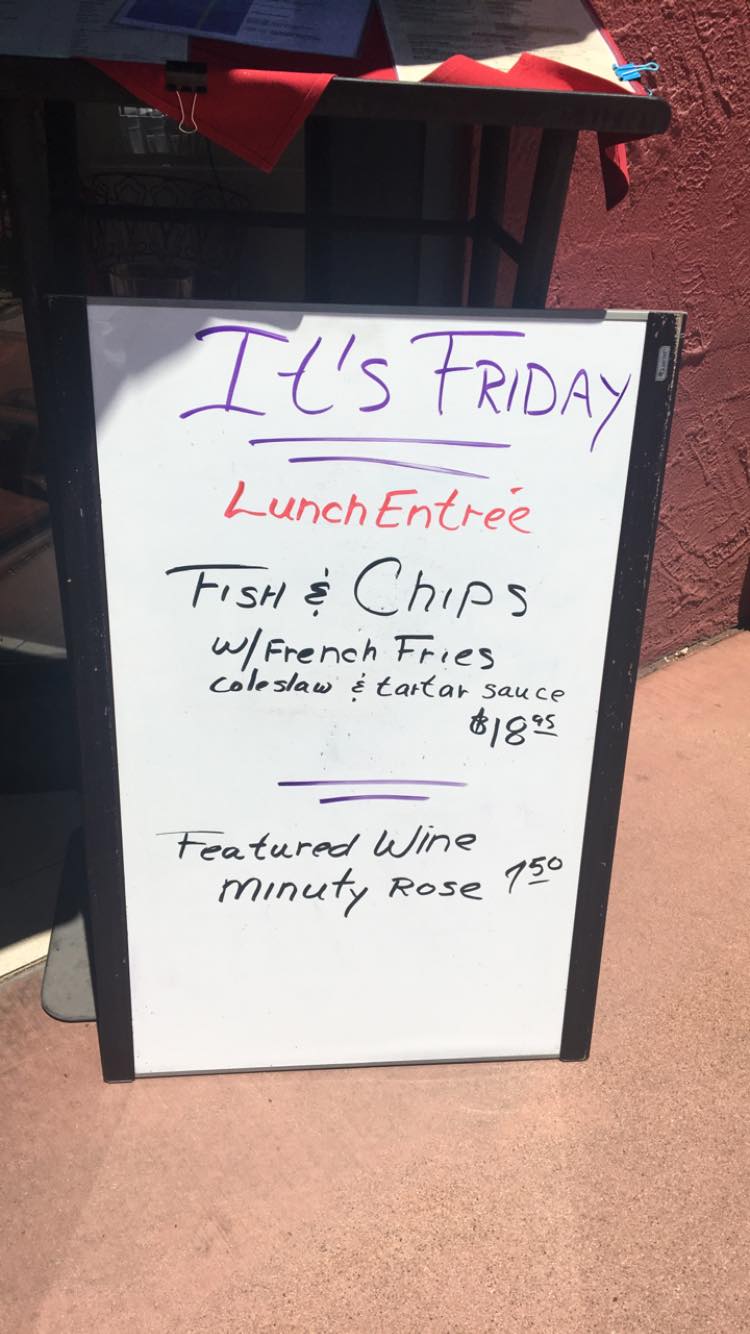 It's FRIDAY
Lunch Entrée
FISH & Chips
w/French Fries
coleslaw & tartar sauce
$18.95
Featured Wine
Minuty Rose 7.50